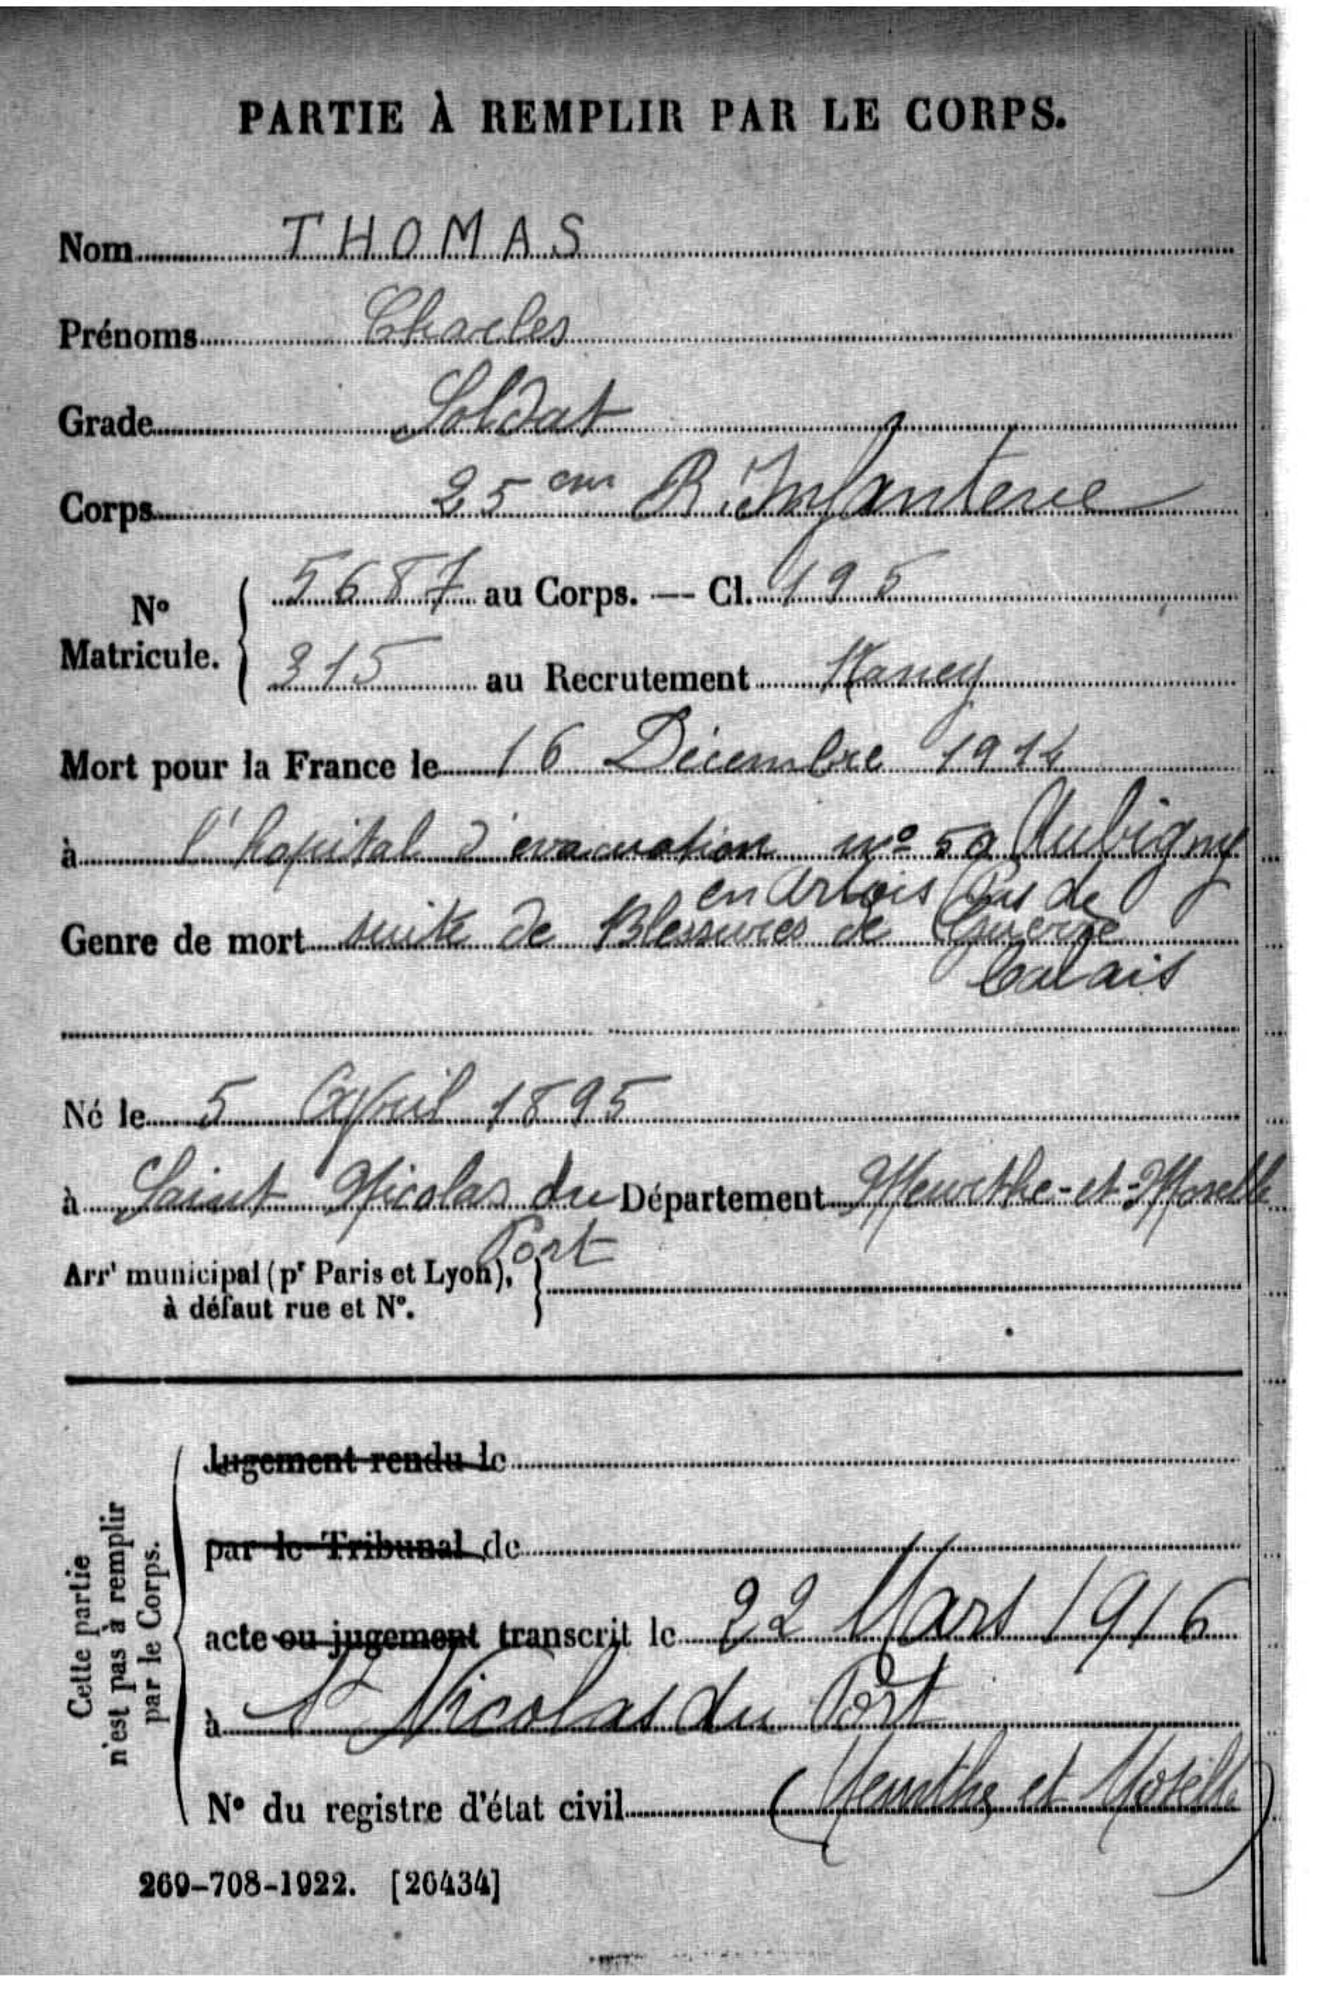 PARTIE À REMPLIR PAR LE CORPS.
Nom THOMAS
Prénoms Charles
Grade Soldat
Corps 25 eme R. Infanterie
N° Matricule. 5687 au Corps. — Cl. 195
315 au Recrutement Nancy
Mort pour la France le 16 Décembre 1914
à l'hopital d'evacuation n° 50 Aubigny
en Artois (Pas de
Genre de mort suite de Blessures de Guerre
Calais
Né le 5 Avril 1895
à Saint Nicolas du Département Meurthe-et-Moselle
Port
Arrt municipal (pr Paris et Lyon),
à défaut rue et N°.
Cette partie
n'est pas à remplir
par le Corps.
Jugement rendu le
par le Tribunal de
acte ou jugement transcrit le 22 Mars 1916
à St Nicolas du Port
N° du registre d'état civil (Meurthe et Moselle)
269-708-1922. [26434]